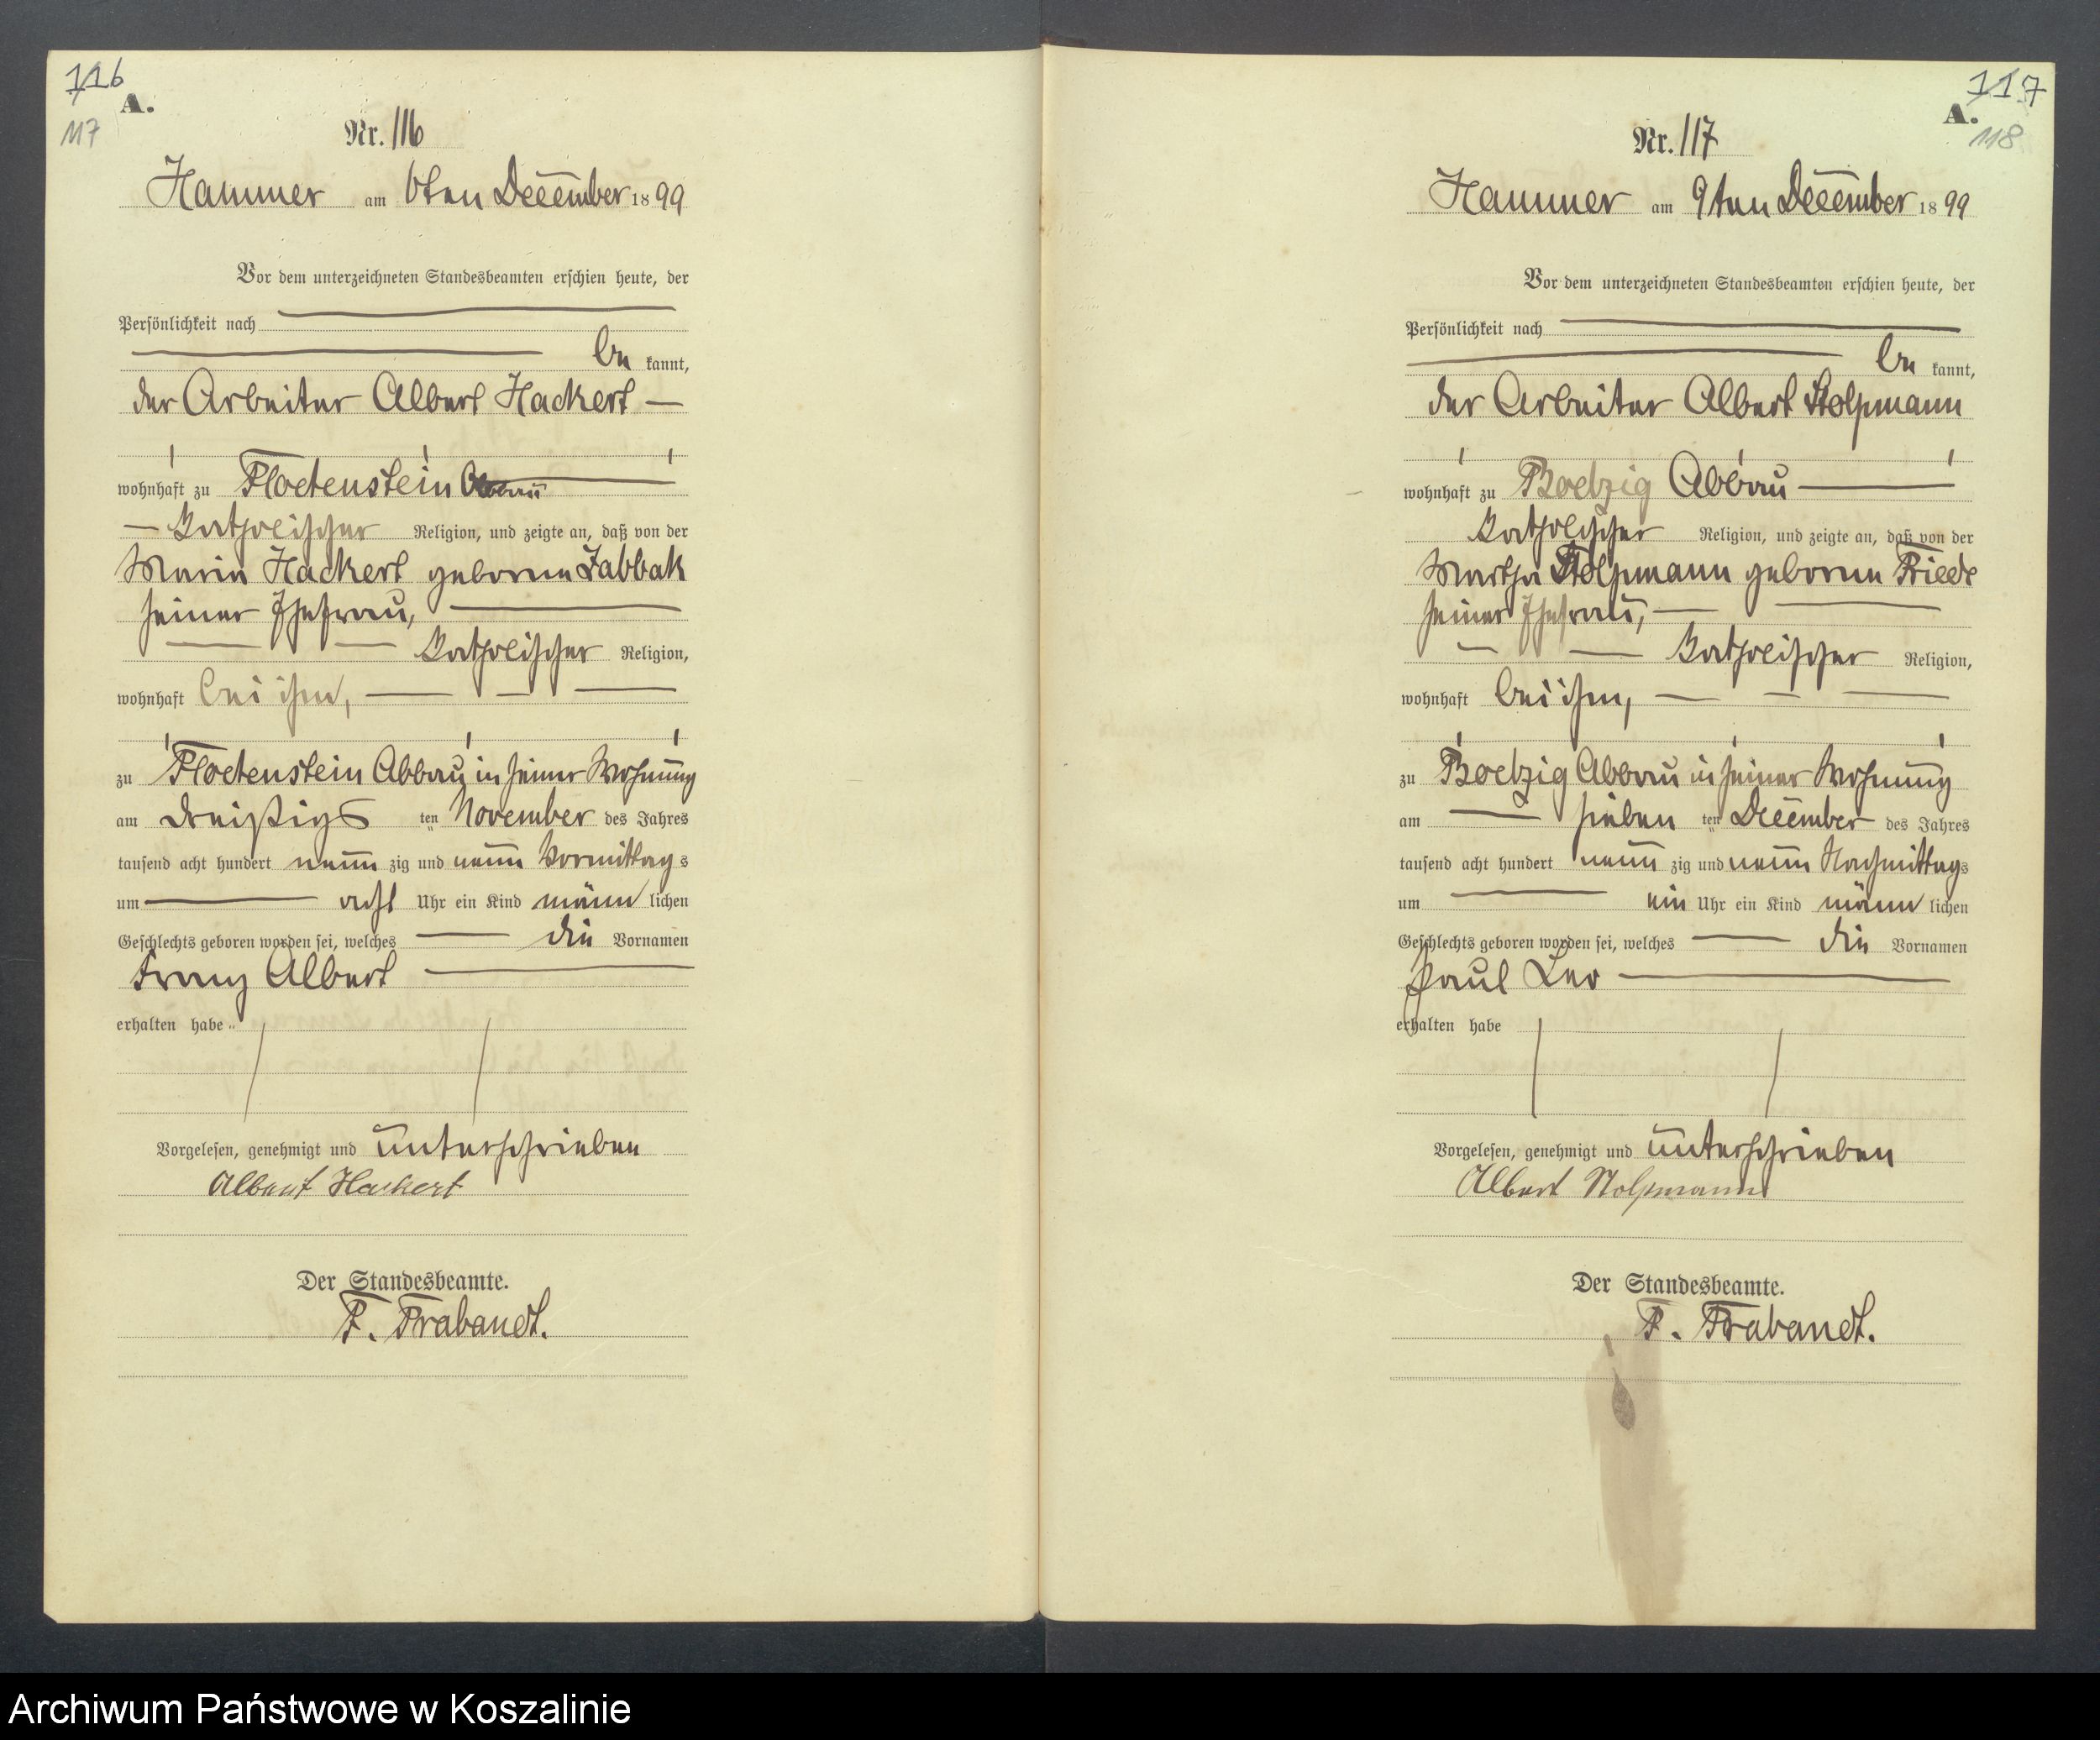 116
A.
117
Nr. 116
Hammer am 6ten December 1899
Vor dem unterzeichneten Standesbeamten erschien heute, der
Persönlichkeit nach
be kannt,
der Arbeiter Albert Hackert
wohnhaft zu Floetenstein Abbau
katholischer Religion, und zeigte an, daß von der
Maria Hackert geborene Jabbak
seiner Ehefrau,
katholischer Religion,
wohnhaft bei ihm,
zu Floetenstein Abbau in seiner Wohnung
am dreißigs ten November des Jahres
tausend acht hundert neun zig und neun Vormittag s
um acht Uhr ein Kind männ lichen
Geschlechts geboren worden sei, welches die Vornamen
Franz Albert
erhalten habe
Vorgelesen, genehmigt und unterschrieben
Albert Hackert
Der Standesbeamte.
F. Trabandt.
117
A.
118
Nr. 117
Hammer am 9ten December 1899
Vor dem unterzeichneten Standesbeamten erschien heute, der
Persönlichkeit nach
be kannt,
der Arbeiter Albert Stolpmann
wohnhaft zu Boelzig Abbau
katholischer Religion, und zeigte an, daß von der
Martha Stolpmann geborene Friede
seiner Ehefrau,
katholischer Religion,
wohnhaft bei ihm,
zu Boelzig Abbau in seiner Wohnung
am sieben ten December des Jahres
tausend acht hundert neun zig und neun Nachmittags
um ein Uhr ein Kind männ lichen
Geschlechts geboren worden sei, welches die Vornamen
Paul Leo
erhalten habe
Vorgelesen, genehmigt und unterschrieben
Albert Stolpmann
Der Standesbeamte.
F. Trabandt.
Archiwum Państwowe w Koszalinie